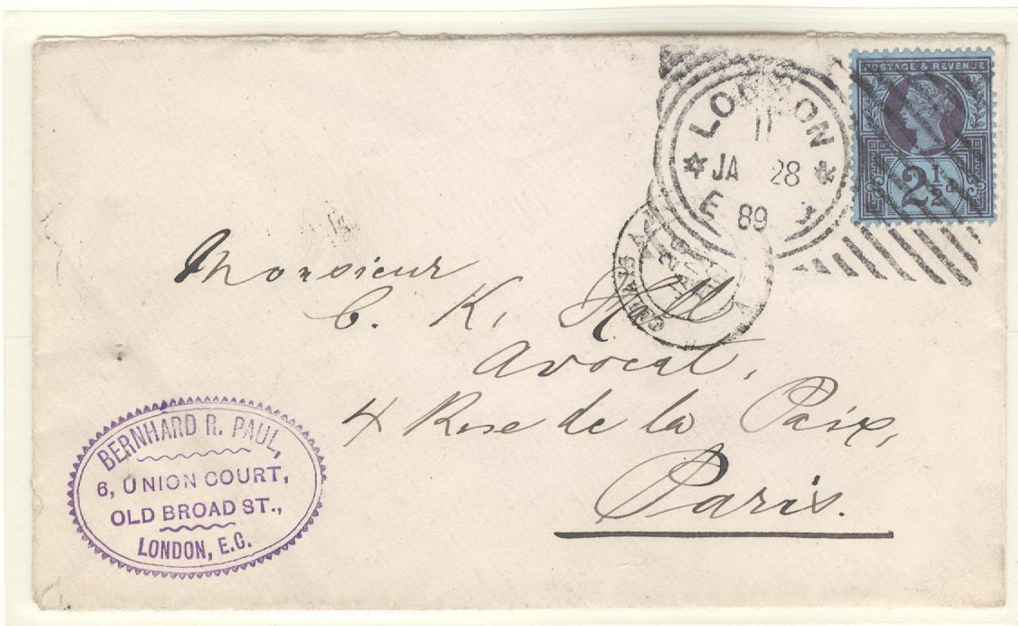 POSTAGE & REVENUE
2½d
LONDON
11
JA 28
E 89
CALAIS
Monsieur
C. K. Hall
Avocat,
4 Rue de la Paix,
Paris.
BERNHARD R. PAUL,
6, UNION COURT,
OLD BROAD ST.,
LONDON, E.C.